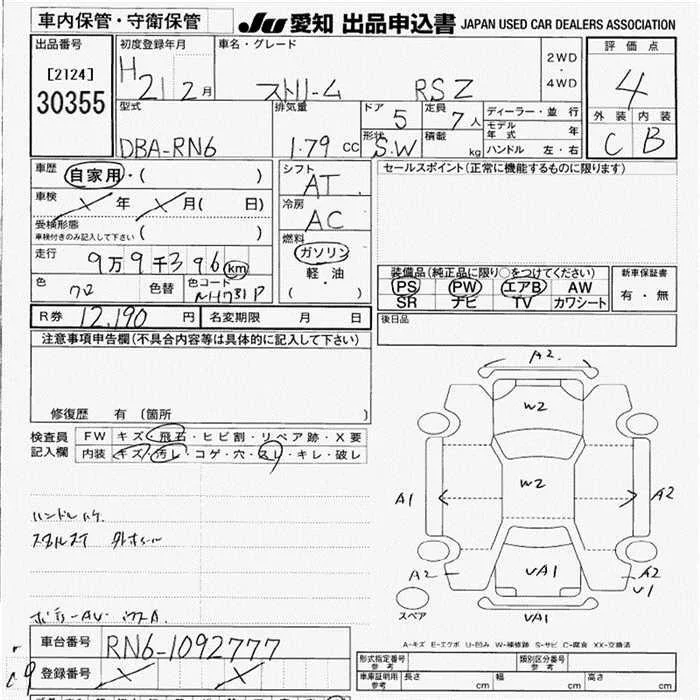 車内保管・守衛保管
JU 愛知 出品申込書 JAPAN USED CAR DEALERS ASSOCIATION
出品番号
[2124]
30355
初度登録年月
H 21 2月
車名・グレード
ストリーム RSZ
2WD
・
4WD
評価点
4
外装 内装
C B
型式
DBA-RN6
排気量
1.79 cc
ドア
5
定員
7人
形状
S.W
積載
kg
ディーラー・並行
モデル年式 年
ハンドル 左・右
車歴
自家用・( )
車検
年 月( 日)
受検形態
車検付きのみ記入して下さい ( )
走行
9万9千396km
色
色替
色コード
NH731P
シフト
AT
冷房
AC
燃料
ガソリン
軽・油
( )
セールスポイント(正常に機能するものに限ります)
装備品(純正品に限り○をつけてください)
PS PW エアB AW
SR ナビ TV カワシート
新車保証書
有・無
R券 12,190 円
名変期限 月 日
後日品
注意事項申告欄(不具合内容等は具体的に記入して下さい)
修復歴 有(箇所 )
検査員
記入欄
FW キズ・飛石・ヒビ割・リペア跡・X要
内装 キズ・汚レ・コゲ・穴・スレ・キレ・破レ
A2
W2
A1
W2
A2
A2
VA1
A2
V1
VA1
スペア
ハンドルハゲ
A-キズ E-エクボ U-凹み W-補修跡 S-サビ C-腐食 XX-交換済
車台番号 RN6-1092777
登録番号
形式指定番号
参考
類別区分番号
参考
車庫証明用
参考
長さ cm 幅 cm 高さ cm